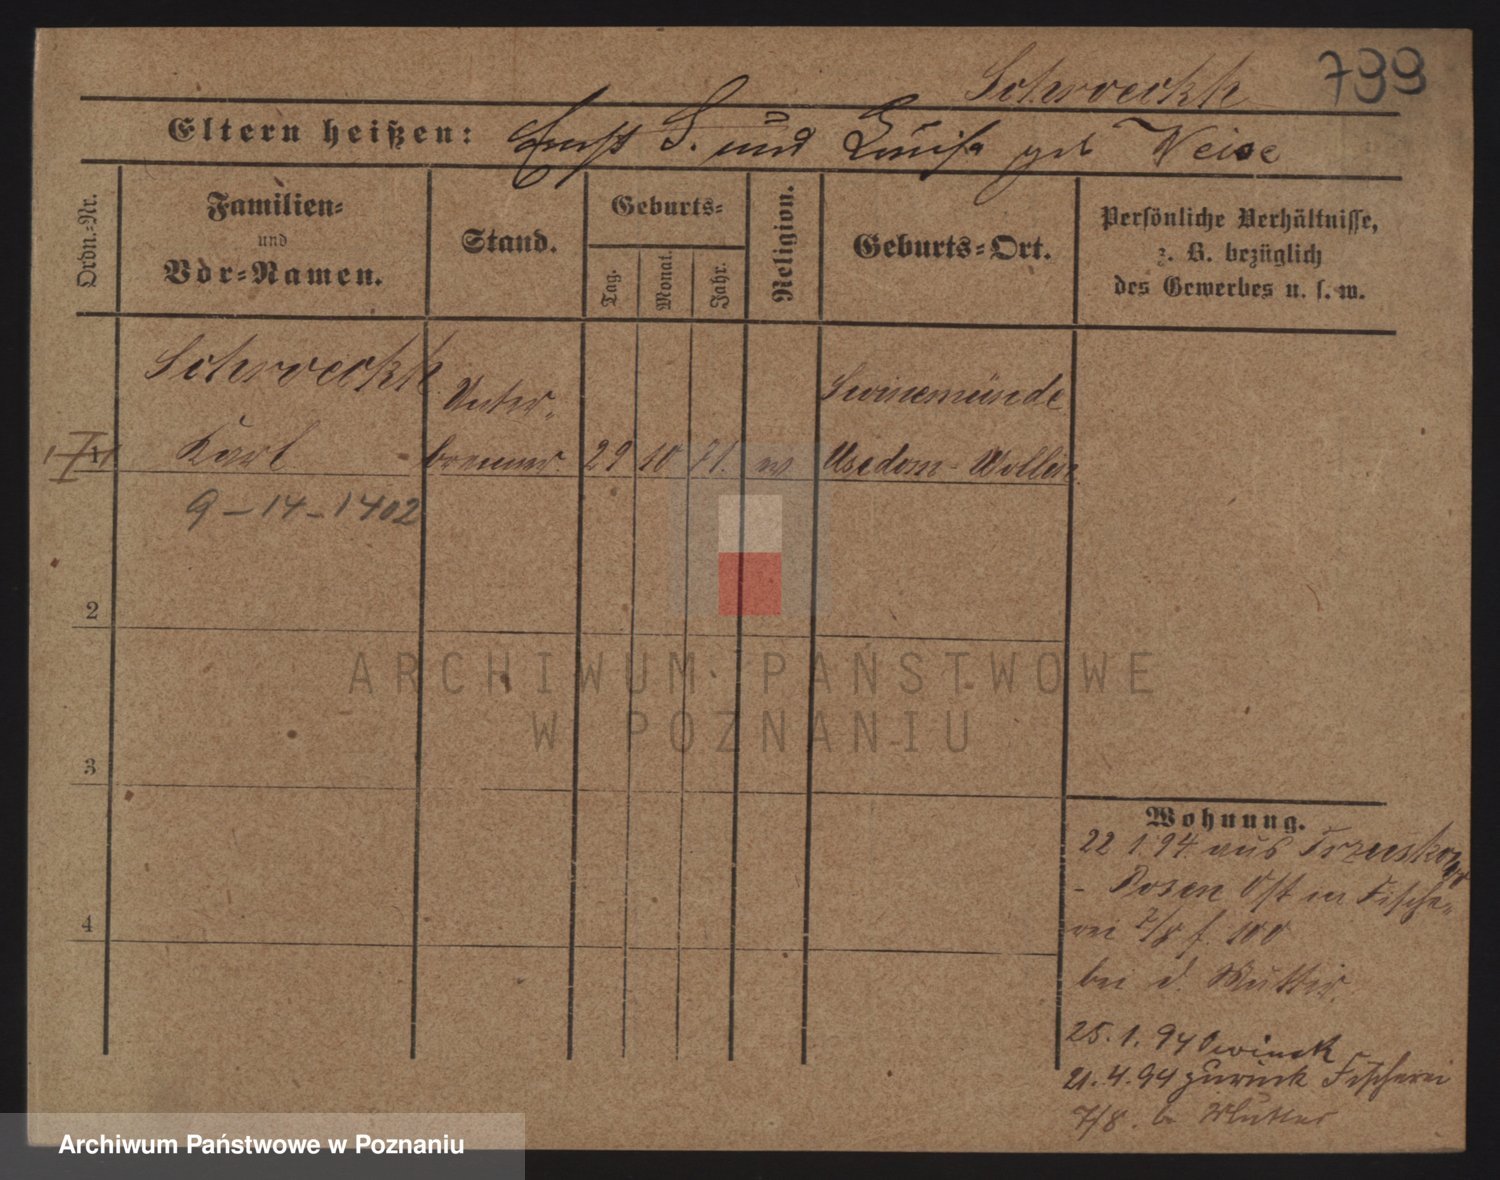 Schroeckh 799
Eltern heißen: Ernst S. und Luise geb Weise
Ordn.-Nr.
Familien-
und
Vor-Namen.
Stand.
Geburts-
Tag.
Monat.
Jahr.
Religion.
Geburts-Ort.
Persönliche Verhältnisse,
z. B. bezüglich
des Gewerbes u. s. w.
Schroeckh Unter- Swinemünde
1 Karl brenner 29 10 71. Usedom-Wollin
9-14-1402
2
3
4
Wohnung.
22 1. 94. aus
- Posen Ost in Fische-
rei 7/8 f. 100
bei d. Mutter.
25. 1. 94 Owinsk
21. 4. 94 zurück Fischerei
7/8. b. Mutter
ARCHIWUM PAŃSTWOWE
W POZNANIU
Archiwum Państwowe w Poznaniu